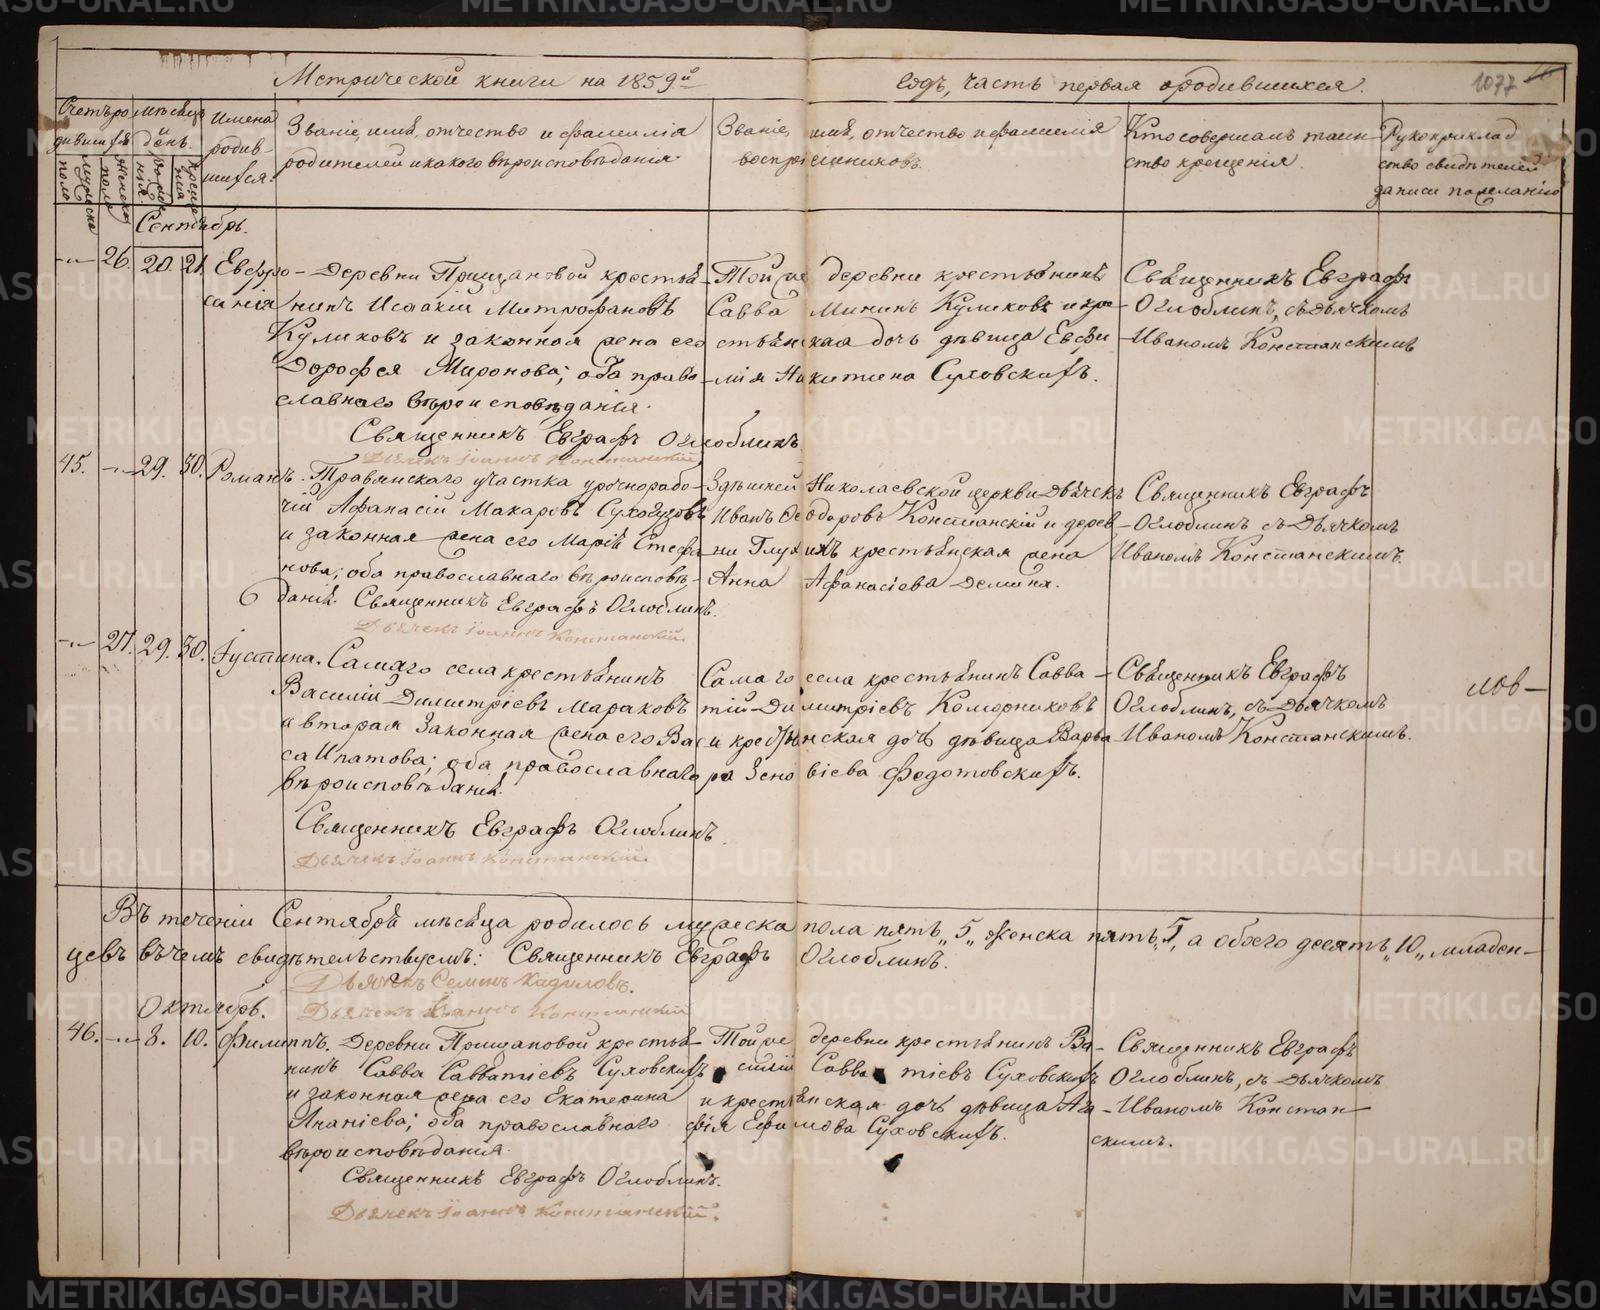 Метрической книги на 1859й годъ, часть первая о родившихся.
1077
Счетъ родившихся
Мѣсяцъ и день.
Имена родившихся.
Званіе, имя, отчество и фамилія
родителей и какого вѣроисповѣданія
Званіе, имя, отчество и фамилія
воспріемниковъ.
Кто совершалъ таинство крещенія.
Рукоприкладство свидѣтелей
записи по желанію
мужска пола
женска пола
рожденія
крещенія
Сентябрь.
-„- 26. 20. 21. Евфросинія
Деревни Прищановой крестья-
нинъ Исаакій Митрофановъ
Куликовъ и законная жена его
Дорофея Миронова; оба право-
славнаго вѣроисповѣданія.
Священникъ Евграфъ Оглоблинъ
Дьячекъ Іоаннъ Констанскій
Той же деревни крестьянинъ
Савва Мининъ Куликовъ и кре-
стьянская дочь дѣвица Евфи-
мія Никитина Суховскихъ.
Священникъ Евграфъ
Оглоблинъ, съ Дьячкомъ
Иваномъ Констанскимъ
45. -„- 29. 30. Романъ.
Травянскаго участка урочнорабо-
чій Афанасій Макаровъ Сухогузовъ
и законная жена его Марія Стефа-
нова; оба православнаго вѣроисповѣ-
данія. Священникъ Евграфъ Оглоблинъ.
Дьячекъ Іоаннъ Констанскій.
Здѣшней Николаевской церкви Дьячекъ
Иванъ Ѳеодоровъ Констанскій и дерев-
ни Глухихъ крестьянская жена
Анна Афанасіева Демина.
Священникъ Евграфъ
Оглоблинъ съ Дьячкомъ
Иваномъ Констанскимъ.
-„- 27. 29. 30. Іустина.
Самаго села крестьянинъ
Василій Димитріевъ Мараковъ
и вторая законная жена его Вас-
са Ипатова; оба православнаго
вѣроисповѣданія.
Священникъ Евграфъ Оглоблинъ
Дьячекъ Іоаннъ Констанскій.
Самаго села крестьянинъ Савва-
тій Димитріевъ Коморниковъ
и крестьянская дочь дѣвица Варва-
ра Зеновіева Федотовскихъ.
Священникъ Евграфъ
Оглоблинъ, съ Дьячкомъ
Иваномъ Констанскимъ.
Въ теченіи Сентября мѣсяца родилось мужеска пола пять „5„ женска пять „5„, а обоего десять „10„ младен-
цевъ въ чемъ свидѣтельствуемъ: Священникъ Евграфъ Оглоблинъ.
Дьячекъ Іоаннъ Констанскій
Октябрь.
46. -„- 8. 10. Филиппъ.
Деревни Прищановой крестья-
нинъ Савва Савватіевъ Суховскихъ
и законная жена его Екатерина
Ананіева; оба православнаго
вѣроисповѣданія.
Священникъ Евграфъ Оглоблинъ.
Дьячекъ Іоаннъ Констанскій.
Той же деревни крестьянинъ Ва-
силій Савватіевъ Суховскихъ
и крестьянская дочь дѣвица Ага-
фія Ефимова Суховскихъ.
Священникъ Евграфъ
Оглоблинъ, съ Дьячкомъ
Иваномъ Констан-
скимъ.
METRIKI.GASO-URAL.RU